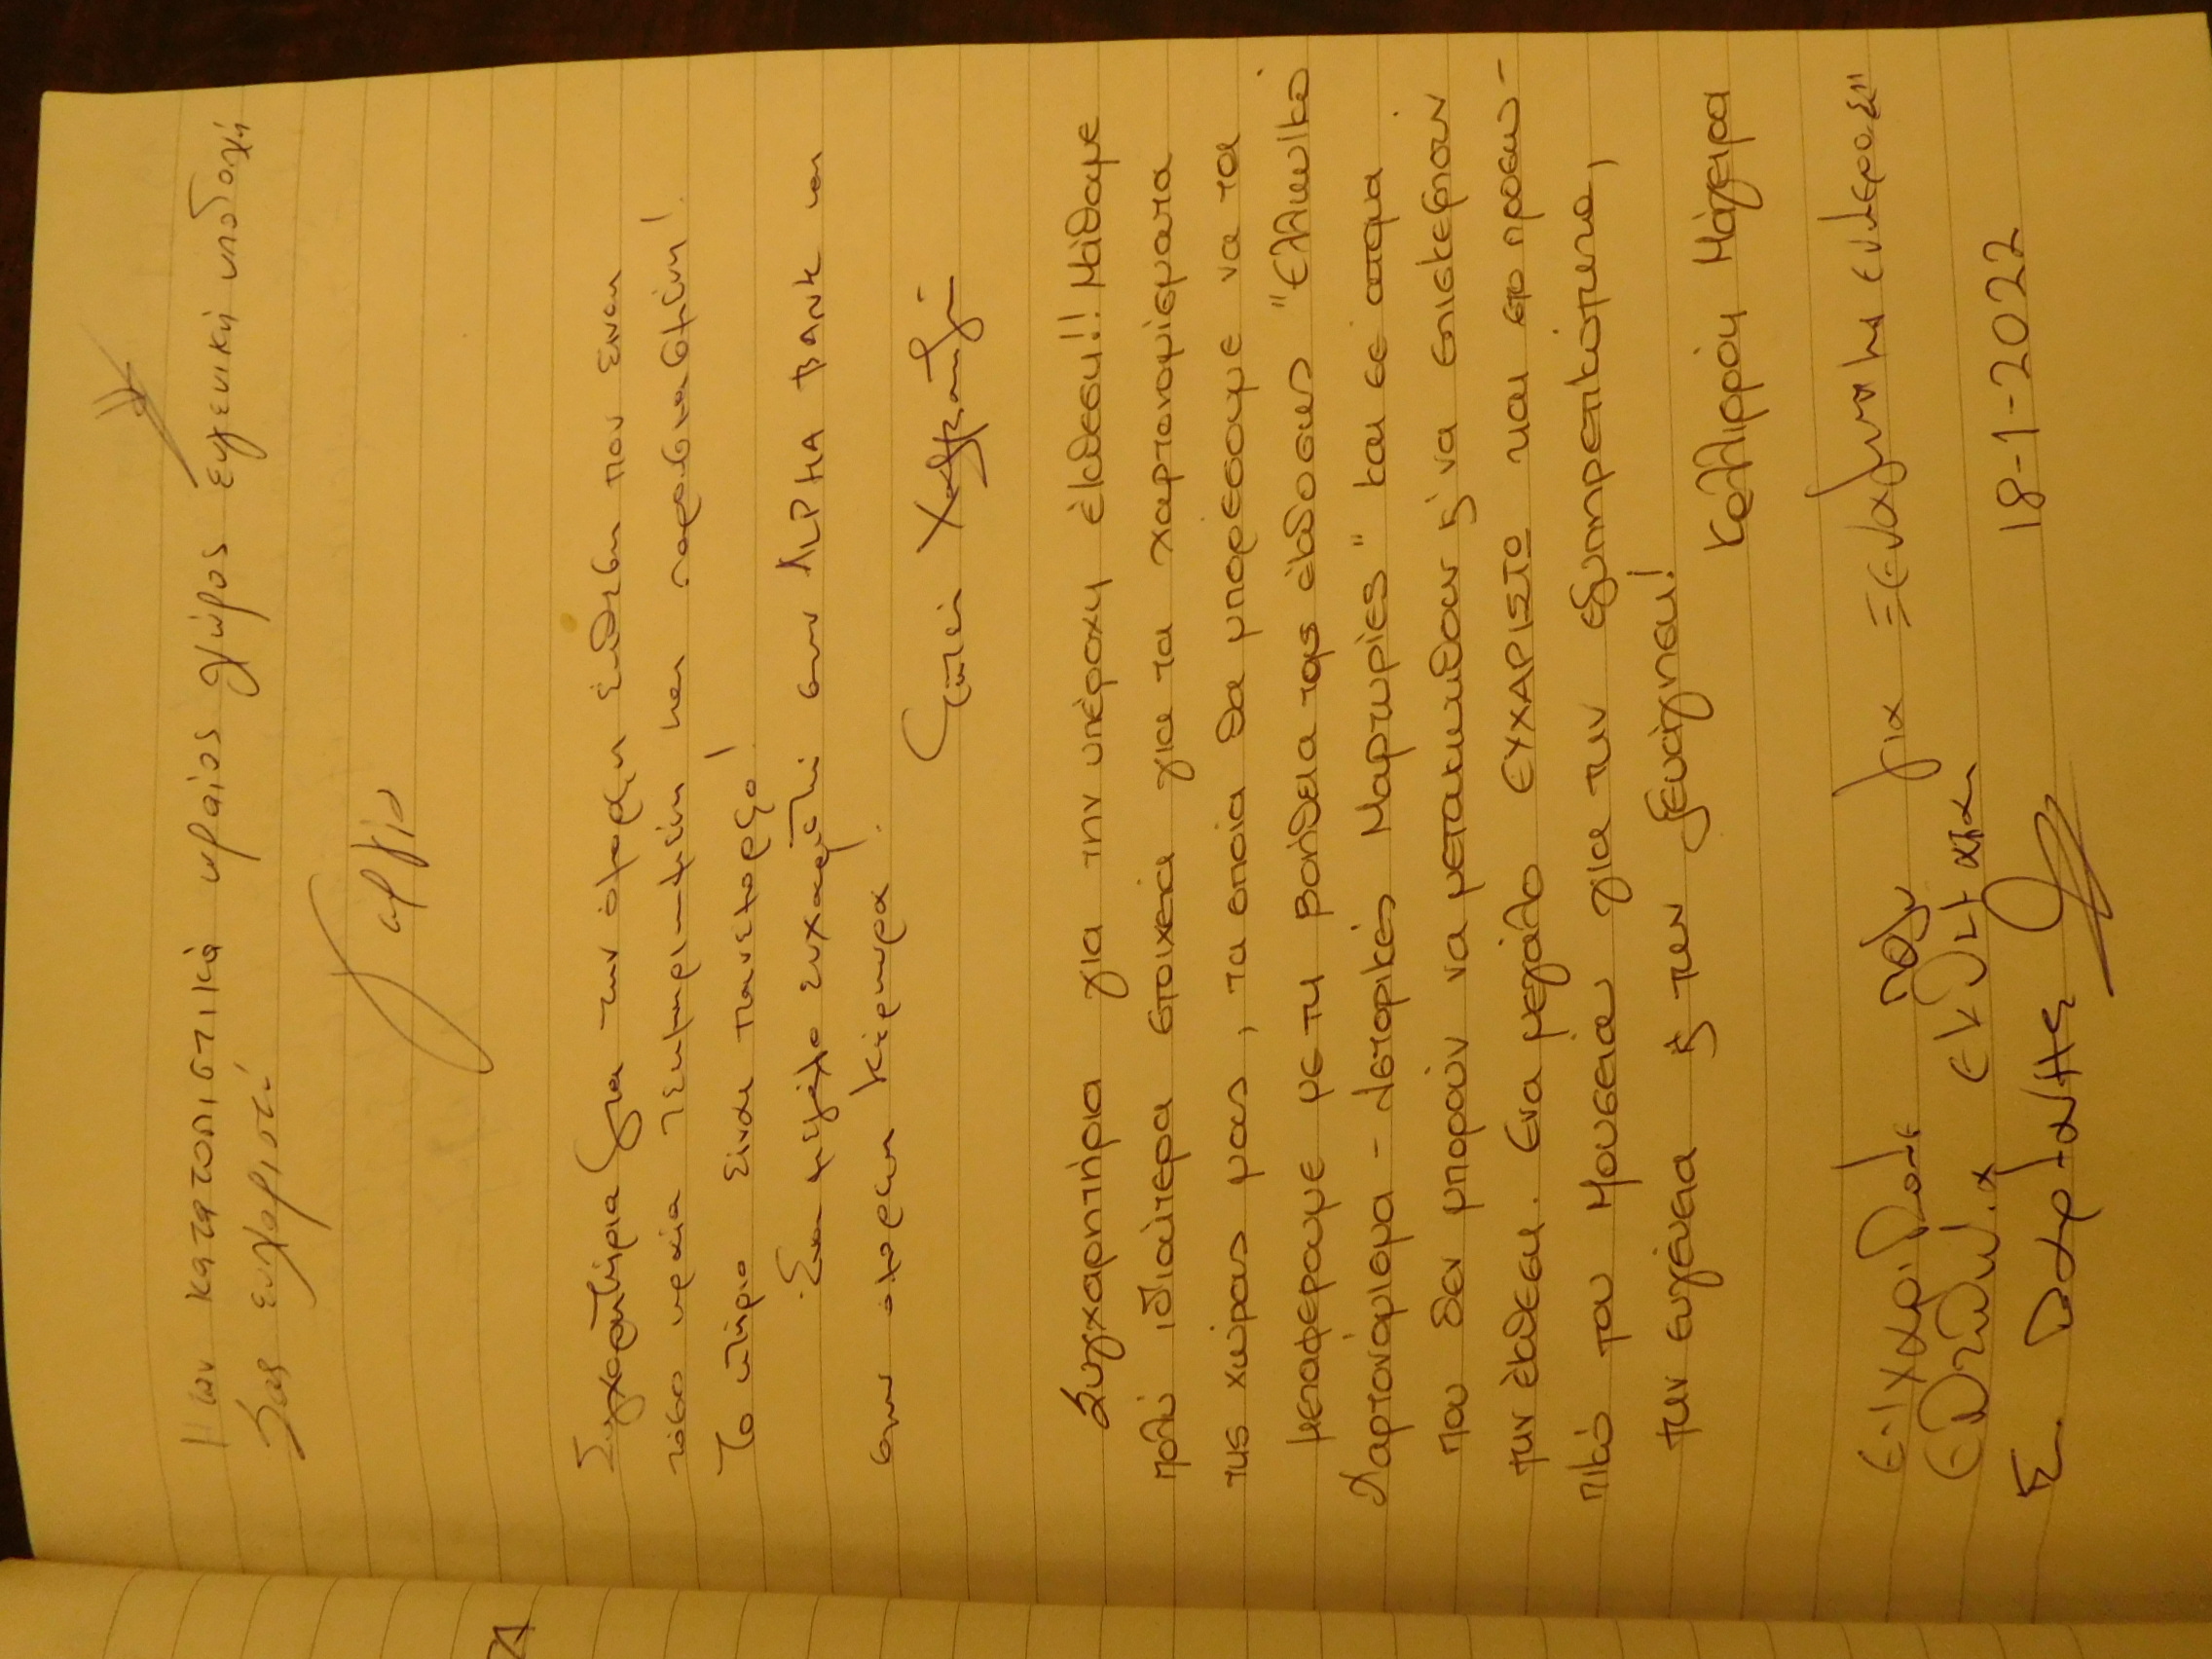 Ήταν καταπληκτικά ωραίος χώρος ευγενική υποδοχή
Σας ευχαριστώ
Συγχαρητήρια για την όμορφη έκθεση που είναι
τόσο ωραία τεκμηριωμένη και παρουσιασμένη!
Το κτίριο είναι πανέμορφο!
Ένα μεγάλο ευχαριστώ στην ALPHA BANK και
στην όμορφη Κέρκυρα.
Συγχαρητήρια για την υπέροχη έκθεση!! Μάθαμε
πολύ ιδιαίτερα στοιχεία για τα χαρτονομίσματα
της χώρας μας, τα οποία θα μπορέσουμε να τα
μεταφέρουμε με τη βοήθεια της έκδοσης "Ελληνικό
Χαρτονόμισμα - Ιστορικές Μαρτυρίες" και σε άτομα
που δεν μπορούν να μετακινηθούν & να επισκεφτούν
την έκθεση. Ένα μεγάλο ΕΥΧΑΡΙΣΤΩ και στο προσω-
πικό του Μουσείου για την εξυπηρετικότητα,
την ευγένεια & την ξενάγηση!
Καλλιρρόη Μάγειρα
Ευχαριστούμε πολύ για Ξενάγηση
18-1-2022